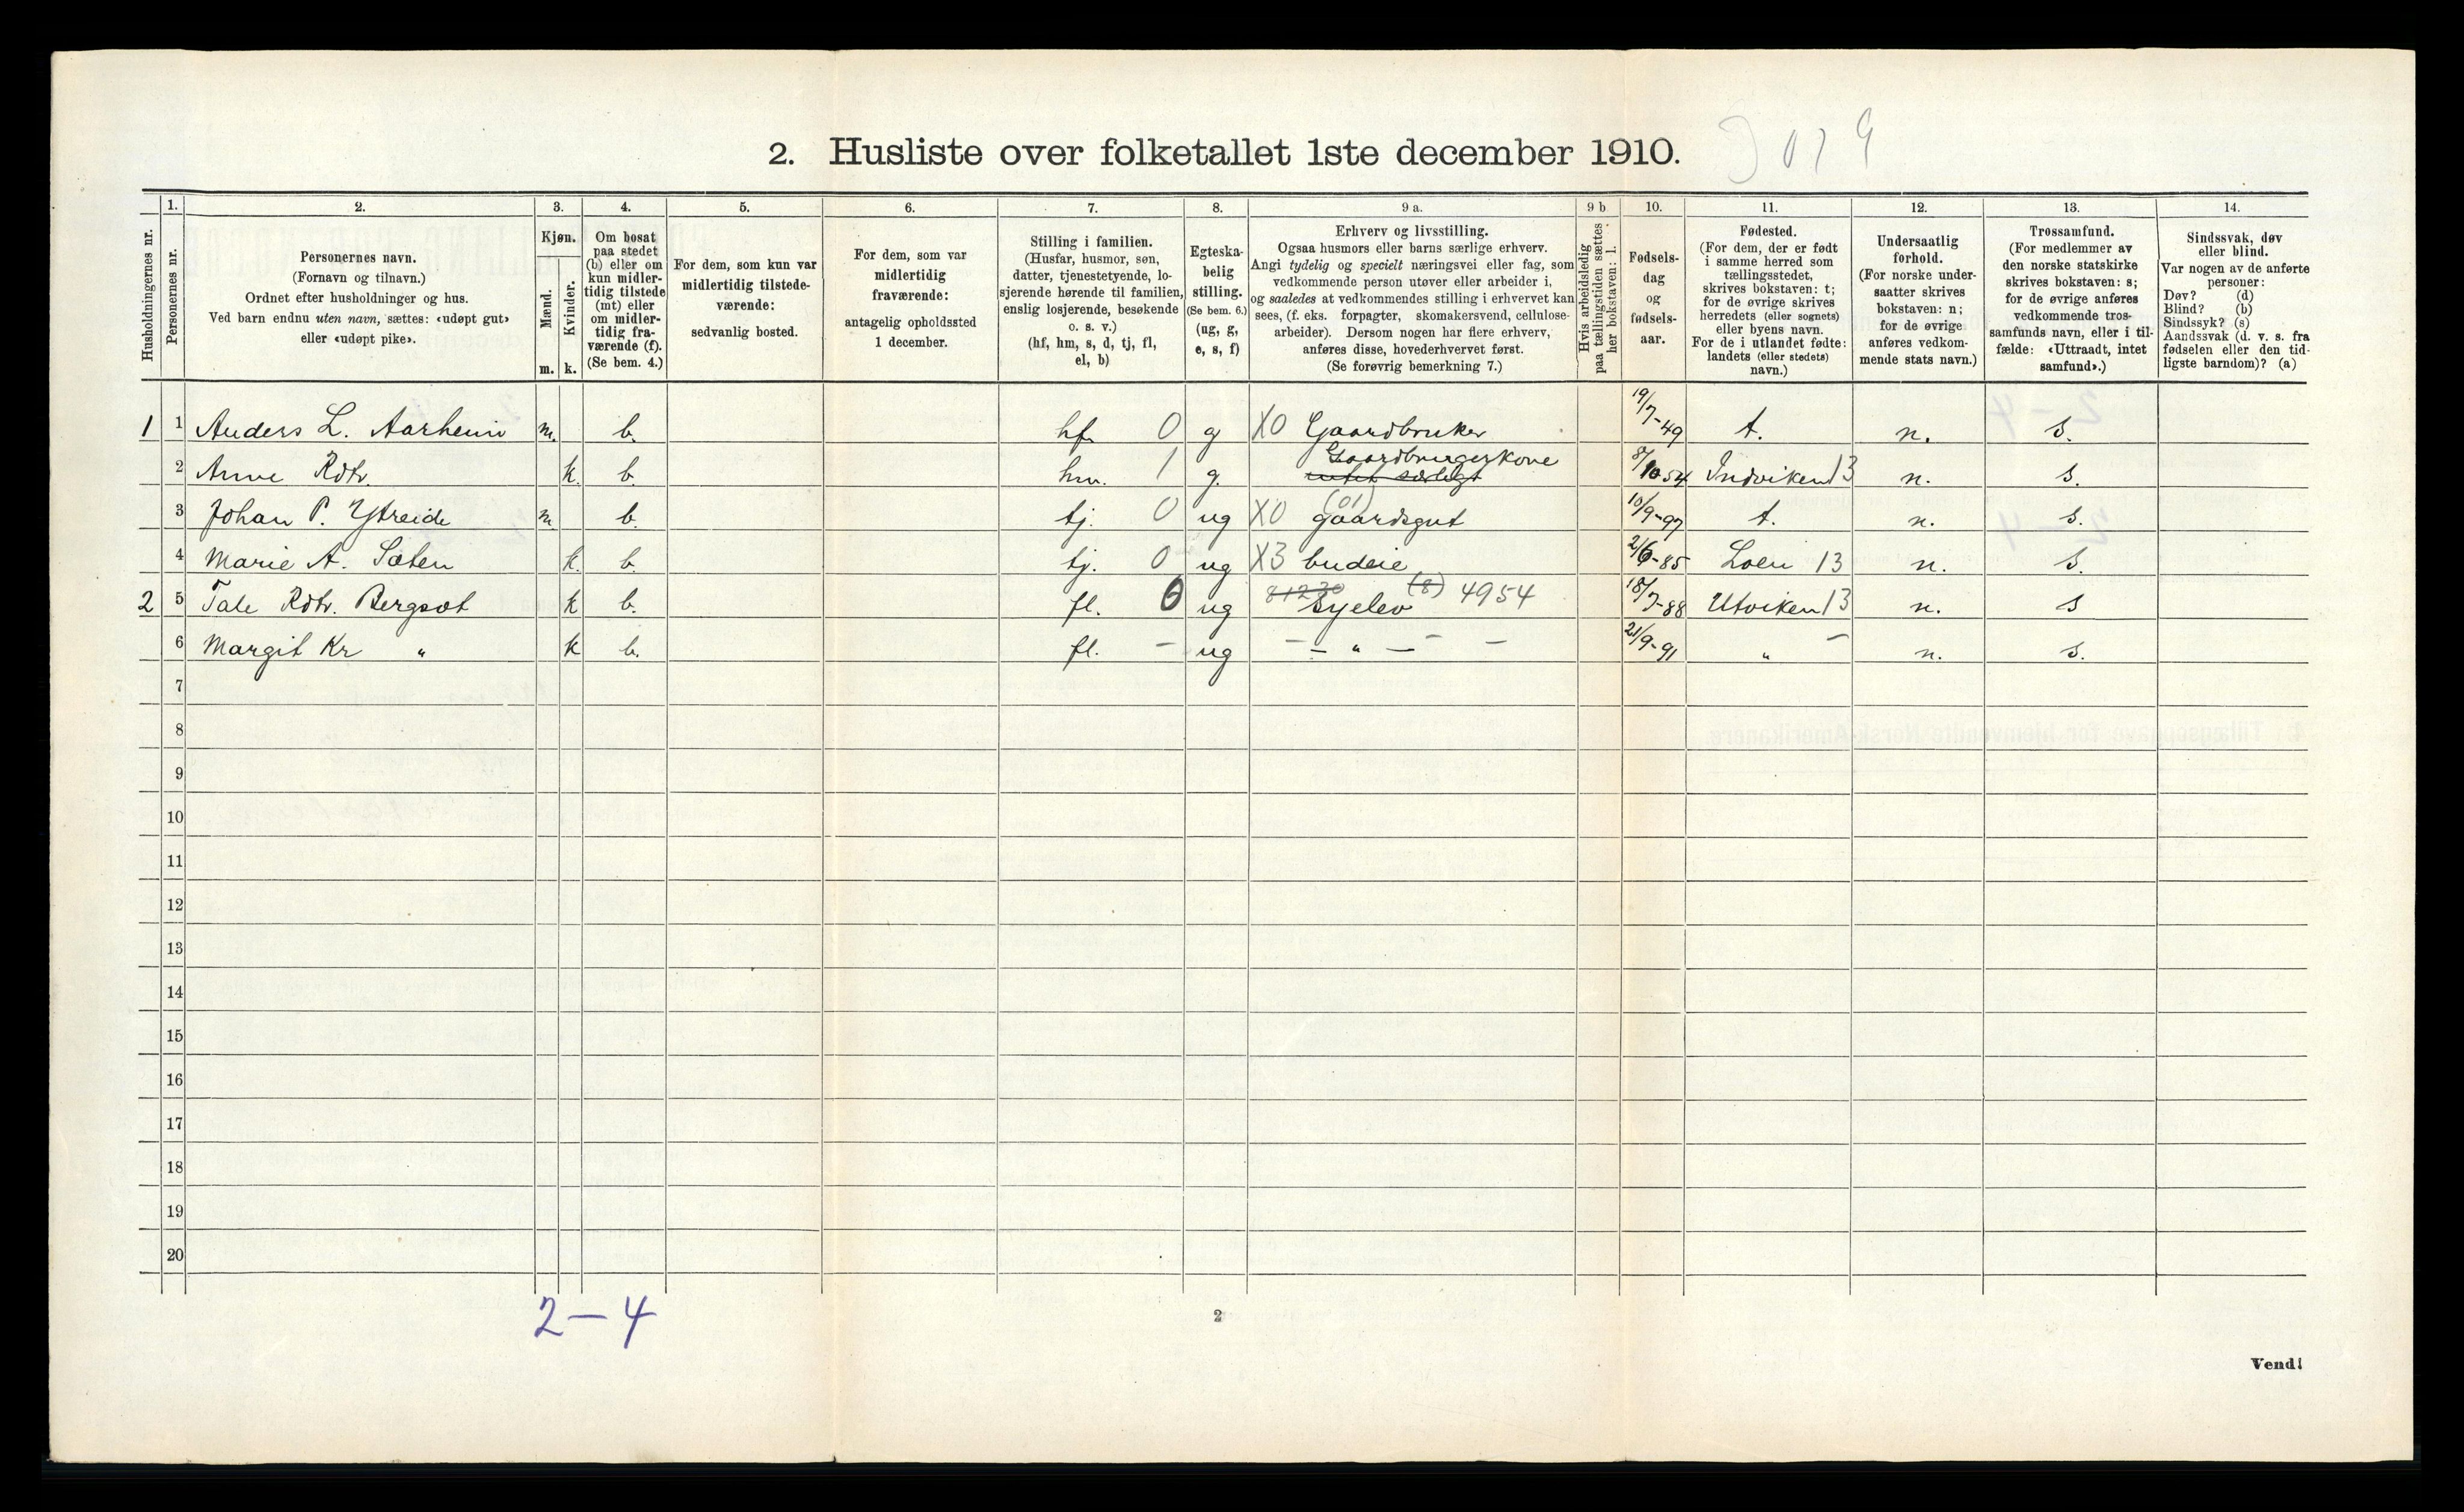 2. Husliste over folketallet 1ste december 1910.
1. 2. 3. 4. 5. 6. 7. 8. 9 a. 9 b 10. 11. 12. 13. 14.
Husholdningernes nr.
Personernes nr.
Personernes navn.
(Fornavn og tilnavn.)
Ordnet efter husholdninger og hus.
Ved barn endnu uten navn, sættes: «udøpt gut»
eller «udøpt pike».
Kjøn.
Mænd.
Kvinder.
m. k.
Om bosat
paa stedet
(b) eller om
kun midler-
tidig tilstede
(mt) eller
om midler-
tidig fra-
værende (f).
(Se bem. 4.)
For dem, som kun var
midlertidig tilstede-
værende:
sedvanlig bosted.
For dem, som var
midlertidig
fraværende:
antagelig opholdssted
1 december.
Stilling i familien.
(Husfar, husmor, søn,
datter, tjenestetyende, lo-
sjerende hørende til familien,
enslig losjerende, besøkende
o. s. v.)
(hf, hm, s, d, tj, fl,
el, b)
Egteska-
belig
stilling.
(Se bem. 6.)
(ug, g,
e, s, f)
Erhverv og livsstilling.
Ogsaa husmors eller barns særlige erhverv.
Angi tydelig og specielt næringsvei eller fag, som
vedkommende person utøver eller arbeider i,
og saaledes at vedkommendes stilling i erhvervet kan
sees, (f. eks. forpagter, skomakersvend, cellulose-
arbeider). Dersom nogen har flere erhverv,
anføres disse, hovederhvervet først.
(Se forøvrig bemerkning 7.)
Hvis arbeidsledig
paa tællingstiden sættes
her bokstaven: l.
Fødsels-
dag
og
fødsels-
aar.
Fødested.
(For dem, der er født
i samme herred som
tællingsstedet,
skrives bokstaven: t;
for de øvrige skrives
herredets (eller sognets)
eller byens navn.
For de i utlandet fødte:
landets (eller stedets)
navn.)
Undersaatlig
forhold.
(For norske under-
saatter skrives
bokstaven: n;
for de øvrige
anføres vedkom-
mende stats navn.)
Trossamfund.
(For medlemmer av
den norske statskirke
skrives bokstaven: s;
for de øvrige anføres
vedkommende tros-
samfunds navn, eller i til-
fælde: «Uttraadt, intet
samfund».)
Sindssvak, døv
eller blind.
Var nogen av de anførte
personer:
Døv? (d)
Blind? (b)
Sindssyk? (s)
Aandssvak (d. v. s. fra
fødselen eller den tid-
ligste barndom)? (a)
1 1 Anders L. Aarheim m. b. hf. 0 g X0 Gaardbruker 19/7-49 t. n. s.
2 Anne Rdtr. k. b. hm. 1 g. Gaardbrugerskone intet særligt 8/10 54 Indviken 13 n. s.
3 Johan P. Ytreide m b. tj. 0 ug X0 (01) gaardsgut 10/9-97 t. n. s.
4 Marie A. Sæten k. b. tj. 0 ug X3 budeie 2/6-85 Loen 13 n. s.
2 5 Tale Rdtr. Bergset k b. fl. 0 ug 81230 Syelev (8) 4954 18/7-88 Utviken 13 n. s
6 Margit Kr " k b. fl. - ug - " - 21/9-91 " - n. s.
7
8
9
10
11
12
13
14
15
16
17
18
19
20
2-4
2
Vend!